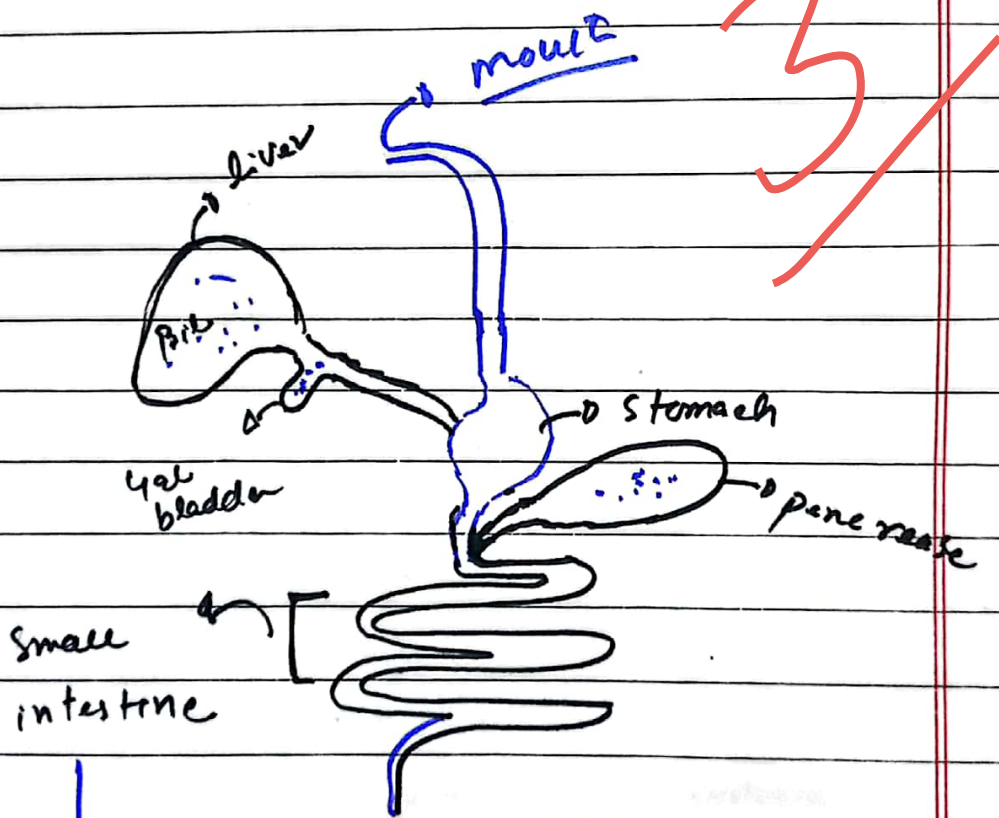 3/
mouth
liver
Bile
stomach
gal
bladder
pancrease
small
intestine